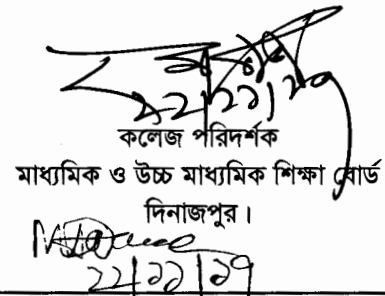 ২২|১১|১৭
কলেজ পরিদর্শক
মাধ্যমিক ও উচ্চ মাধ্যমিক শিক্ষা বোর্ড
দিনাজপুর।
২২|১১|১৭